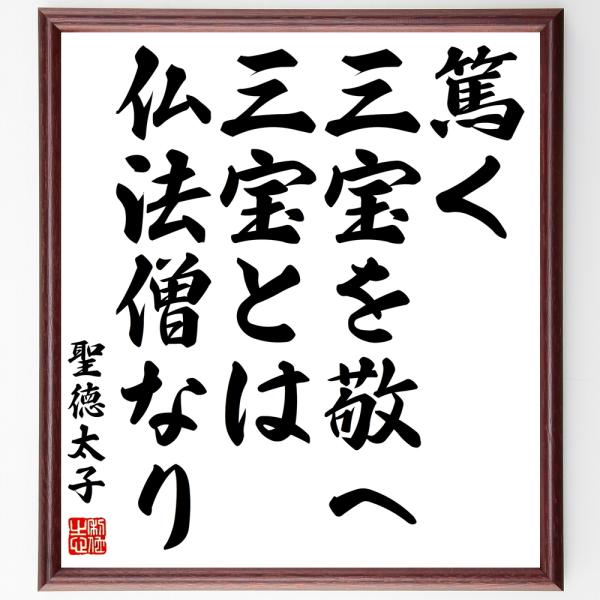 篤く
三宝を敬へ
三宝とは
仏法僧なり
聖徳太子